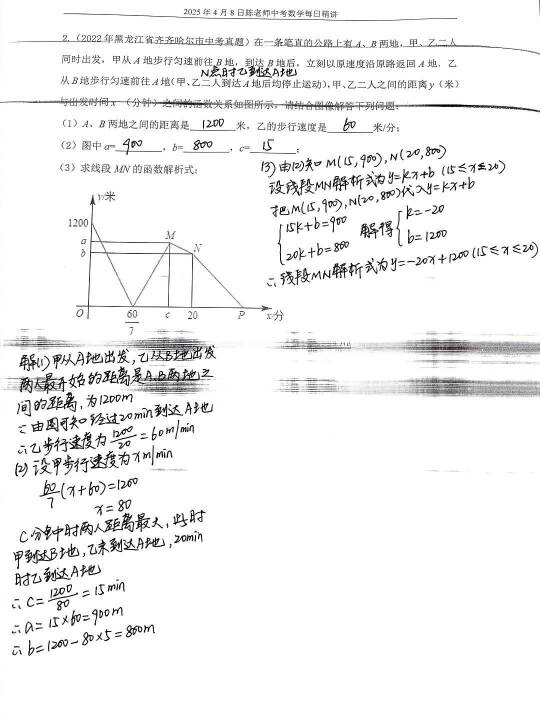 2025 年 4 月 8 日陈老师中考数学每日精讲
2.(2022 年黑龙江省齐齐哈尔市中考真题)在一条笔直的公路上有 A、B 两地,甲、乙二人
同时出发,甲从 A 地步行匀速前往 B 地,到达 B 地后,立刻以原速度沿原路返回 A 地.乙
N点时乙到达A地
从 B 地步行匀速前往 A 地(甲、乙二人到达 A 地后均停止运动),甲、乙二人之间的距离 y(米)
与出发时间 x(分钟)之间的函数关系如图所示,请结合图像解答下列问题:
(1)A、B 两地之间的距离是 1200 米,乙的步行速度是 60 米/分;
(2)图中 a= 900 ,b= 800 ,c= 15 ;
(3)求线段 MN 的函数解析式;
(3) 由(2)知 M(15,900),N(20,800)
设线段MN解析式为y=kx+b (15≤x≤20)
把M(15,900),N(20,800)代入y=kx+b
{15k+b=900
20k+b=800
解得{k=-20
b=1200
∴线段MN解析式为y=-20x+1200(15≤x≤20)
y/米
1200
a
b
M
N
O
60/7
c
20
P
x/分
解:(1)甲从A地出发,乙从B地出发
两人最开始的距离是A、B两地之
间的距离,为1200m
∵由图可知经过20min到达A地
∴乙步行速度为1200/20=60m/min
(2)设甲步行速度为xm/min
60/7(x+60)=1200
x=80
C分钟时两人距离最大,此时
甲到达B地,乙未到达A地,20min
时乙到达A地
∴C=1200/80=15min
∴a=15×60=900m
∴b=1200-80×5=800m